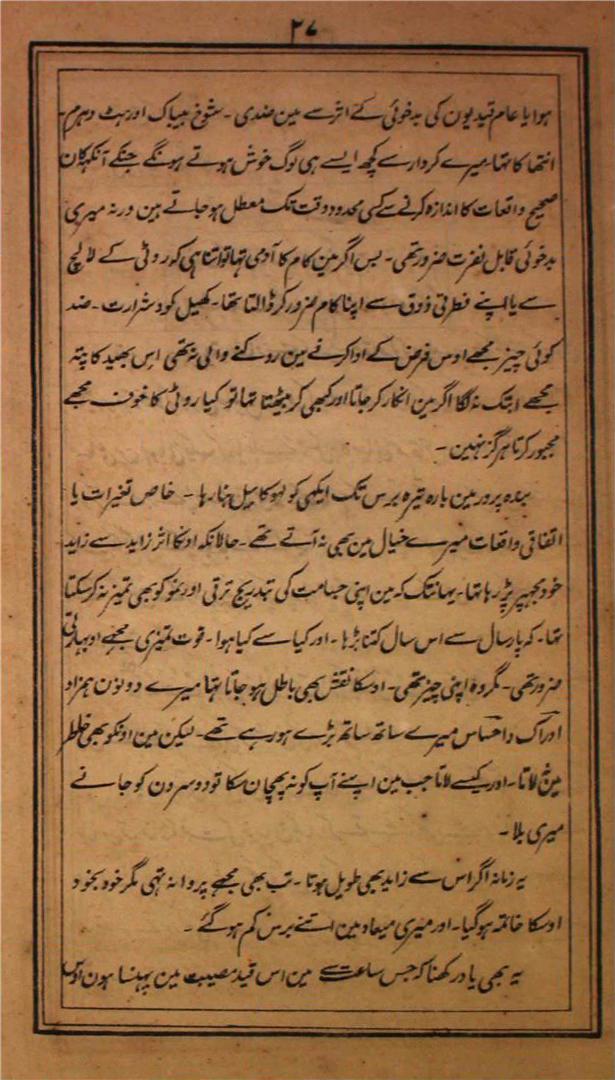 ۲۷
ہوا یا عام قیدیون کی بدخوئی کے اثر سے مین ضدی ۔ شوخ بیباک اور ہٹ دہرم
انتہا کا تہا میرے کردار سے کچھ ایسے ہی لوگ خوش ہوتے ہونگے جنکے آنکہہ کان
صحیح واقعات کا اندازہ کرنے سے کسی محدود وقت تک معطل ہو جاتے ہین ورنہ میری
بدخوئی قابل نفرت ضرور تھی ۔ بس اگر مین کام کا آدمی تہا تو اتنا ہی کہ روٹی کے لالچ
سے یا اپنے فطرتی ذوق سے اپنا کام ضرور کر ڈالتا تھا ۔ کھیل کود شرارت ۔ ضد
کوئی چیز مجھے اوس فرض کے ادا کرنے مین روکنے والی نہ تھی اس بھید کا پتہ
مجھے ابتک نہ لگا اگر مین انکار کر جاتا اور کبھی کر بیٹھتا تہا تو کیا روٹی کا خوف مجھے
مجبور کرتا ہرگز نہین ۔
بندہ پرور مین بارہ تیرہ برس تک ایکھی کولہو کا بیل بنا رہا ۔ خاص تغیرات یا
اتفاقی واقعات میرے خیال مین بھی نہ آتے تھے ۔ حالانکہ اونکا اثر زاید سے زاید
خود مجھپر پڑ رہا تہا ۔ یہانتک کہ مین اپنی جسامت کی تبدریج ترقی اور نمو کو بھی تمیز نہ کر سکتا
تہا ۔ کہ پار سال سے اس سال کتنا بڑہا ۔ اور کیا سے کیا ہوا ۔ قوت تمیزی مجھے اوبہارتی
ضرور تھی ۔ مگر وہ اپنی چیز تھی ۔ اوسکا نقش بھی باطل ہو جاتا تہا میرے دونون ہمزاد
ادراک و احساس میرے ساتھ ساتھ بڑے ہو رہے تھے ۔ لیکن مین اونکو بھی خاطر
مین نہ لاتا ۔ اور کیسے لاتا جب مین اپنے آپ کو نہ پہچان سکا تو دوسرون کو جانے
میری بلا ۔
یہ زمانہ اگر اس سے زاید بھی طویل ہوتا ۔ تب بھی مجھے پروا نہ تہی مگر خود بخود
اوسکا خاتمہ ہو گیا ۔ اور میری میعاد مین اتنے برس کم ہو گئے ۔
یہ بھی یاد رکھنا کہ جس ساعت سے مین اس قید مصیبت مین پہنسا ہون اوس